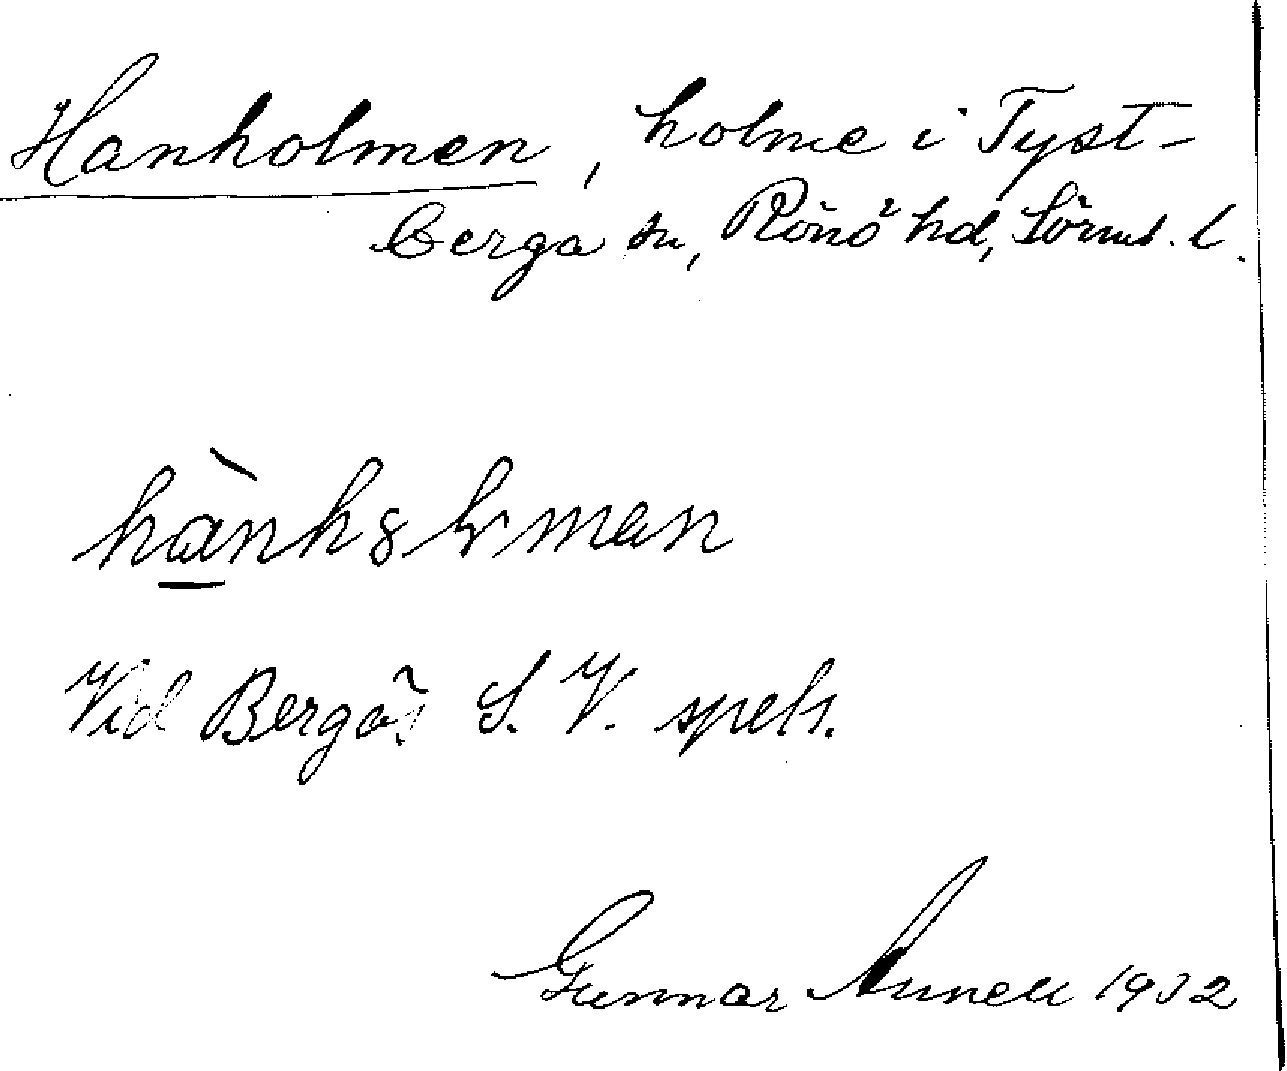 Hanholmen, holme i Tyst-
berga sn, Rönö hd, Sörml. l.
Vid Bergö, S. V. spets.
Gunnar Annell 1932